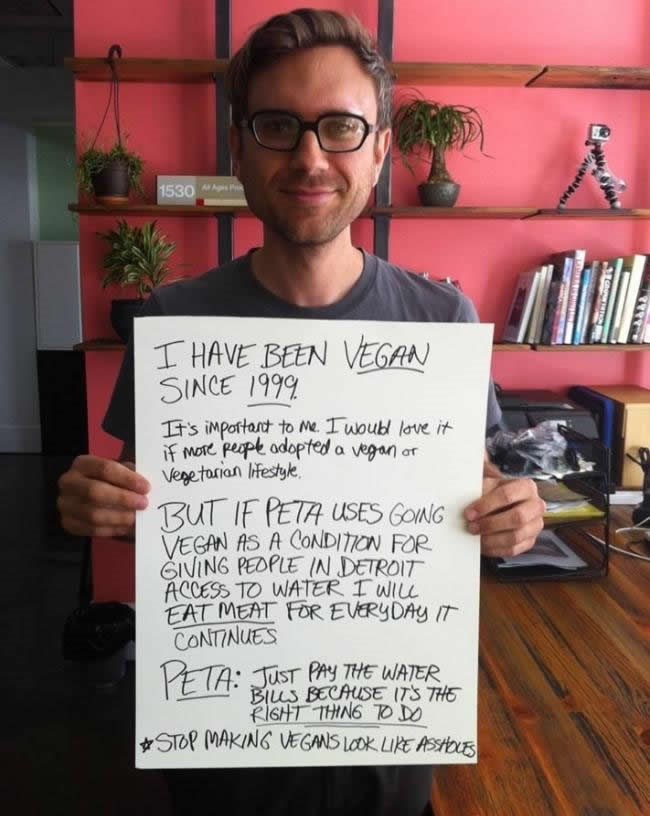 1530 All Ages
I HAVE BEEN VEGAN
SINCE 1999.
It's important to me. I would love it
if more people adopted a vegan or
vegetarian lifestyle.
BUT IF PETA USES GOING
VEGAN AS A CONDITION FOR
GIVING PEOPLE IN DETROIT
ACCESS TO WATER I WILL
EAT MEAT FOR EVERYDAY IT
CONTINUES
PETA: JUST PAY THE WATER
BILLS BECAUSE IT'S THE
RIGHT THING TO DO
☆ STOP MAKING VEGANS LOOK LIKE ASSHOLES